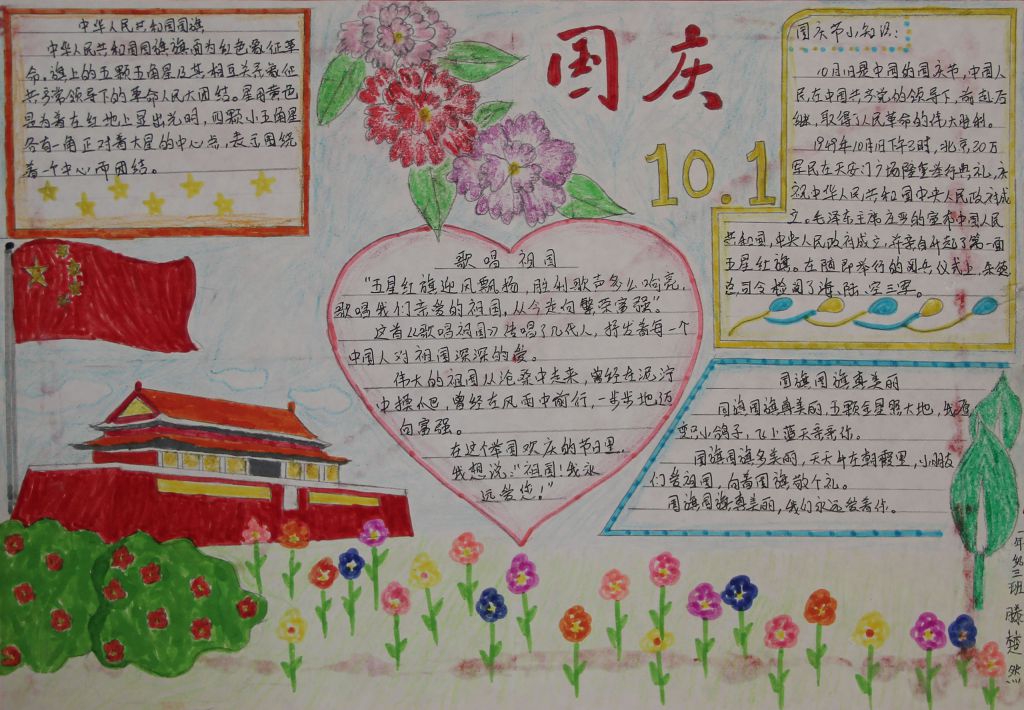 中华人民共和国国旗
中华人民共和国国旗旗面为红色象征革
命。旗上的五颗五角星及其相互关系象征
共产党领导下的革命人民大团结。星用黄色
是为着在红地上显出光明，四颗小五角星
各有一角正对着大星的中心点，表示围绕
着一个中心而团结。
国庆
10.1
国庆节小知识：
10月1日是中国的国庆节，中国人
民在中国共产党的领导下，前赴后
继，取得了人民革命的伟大胜利。
1949年10月1日下午3时，北京30万
军民在天安门广场隆重举行典礼，庆
祝中华人民共和国中央人民政府成
立。毛泽东主席庄严的宣布中国人民
共和国，中央人民政府成立，并亲自升起了第一面
五星红旗。在随即举行的阅兵仪式上，朱德
总司令检阅了海、陆、空三军。
歌唱祖国
"五星红旗迎风飘扬，胜利歌声多么响亮，
歌唱我们亲爱的祖国，从今走向繁荣富强"。
这首《歌唱祖国》传唱了几代人，抒发着每一个
中国人对祖国深深的爱。
伟大的祖国从沧桑中走来，曾经在泥泞
中摸爬，曾经在风雨中前行，一步步地迈
向富强。
在这个举国欢庆的节日里，
我想说："祖国！我永
远爱您！"
国旗国旗真美丽
国旗国旗真美丽，五颗金星照大地，我愿
变只小鸽子，飞上蓝天亲亲你。
国旗国旗多美丽，天天升在朝霞里，小朋友
们爱祖国，向着国旗敬个礼。
国旗国旗真美丽，我们永远爱着你。
年级三班 滕楚然